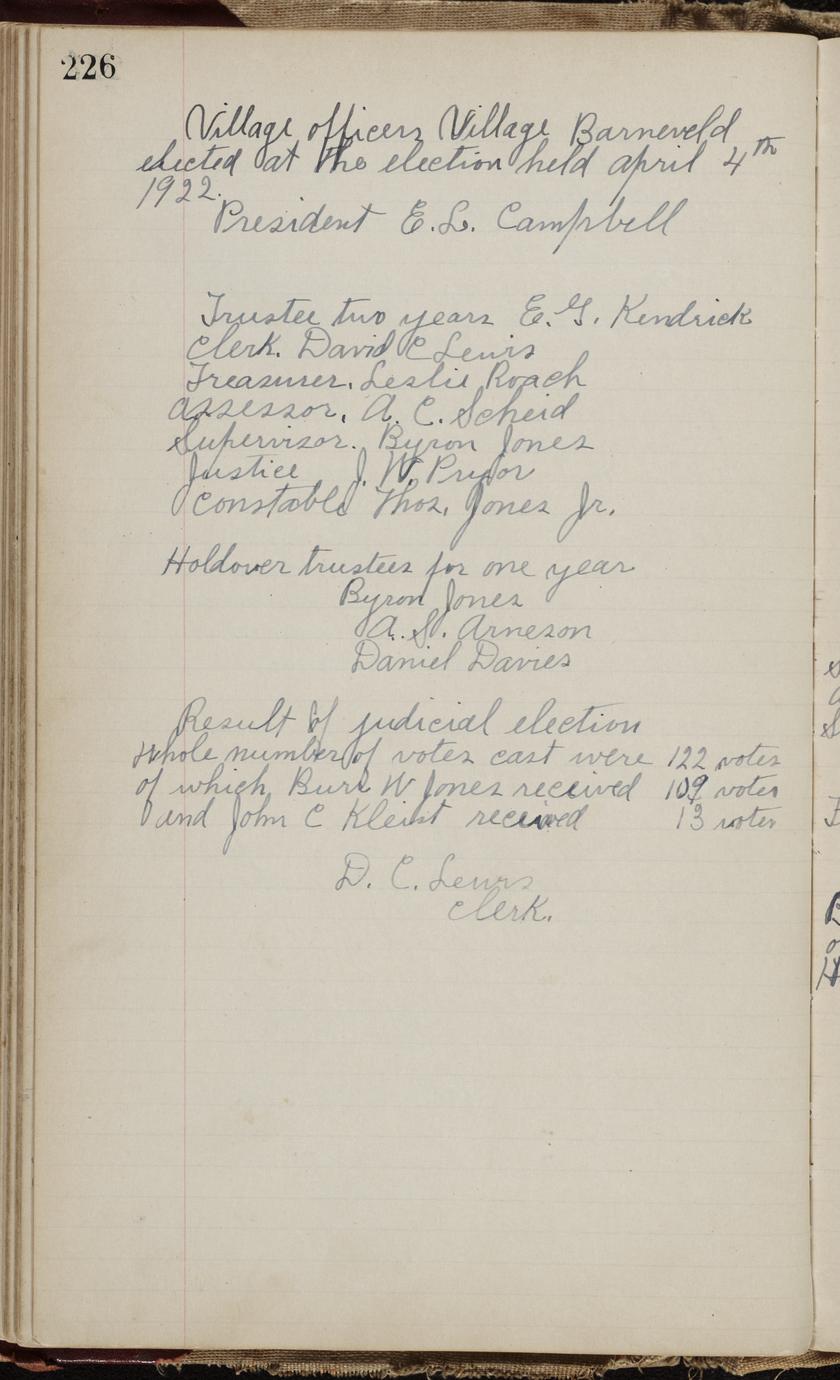 226
Village officers Village Barneveld
elected at the election held april 4th
1922.
President E.L. Campbell
Trustee two years E.G. Kendrick
Clerk. David C Lewis
Treasurer. Leslie Roach
assessor. A. C. Scheid
Supervisor. Byron Jones
Justice J. W. Pryor
Constable Thos. Jones Jr.
Holdover trustees for one year
Byron Jones
A. S. Arneson
Daniel Davies
Result of judicial election
whole number of votes cast were 122 votes
of which Burr W Jones received 109 votes
and John C Kleist received 13 votes
D. C. Lewis
Clerk.